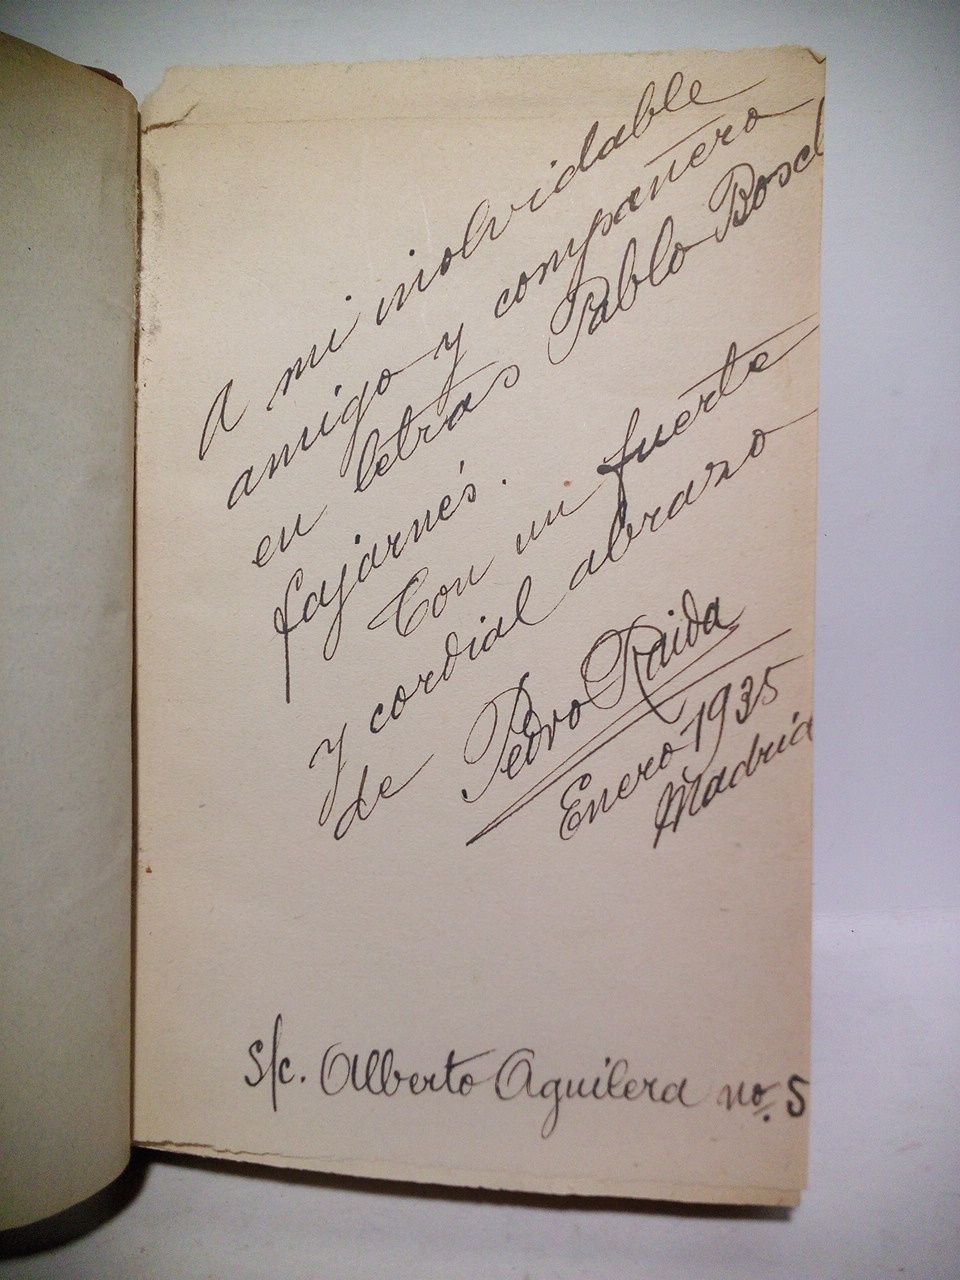 A mi inolvidable
amigo y compañero
en letras Pablo Bosch
fajarnés.
Con un fuerte
y cordial abrazo
de Pedro Raida
Enero 1935
Madrid
s/c. Alberto Aguilera no. 5